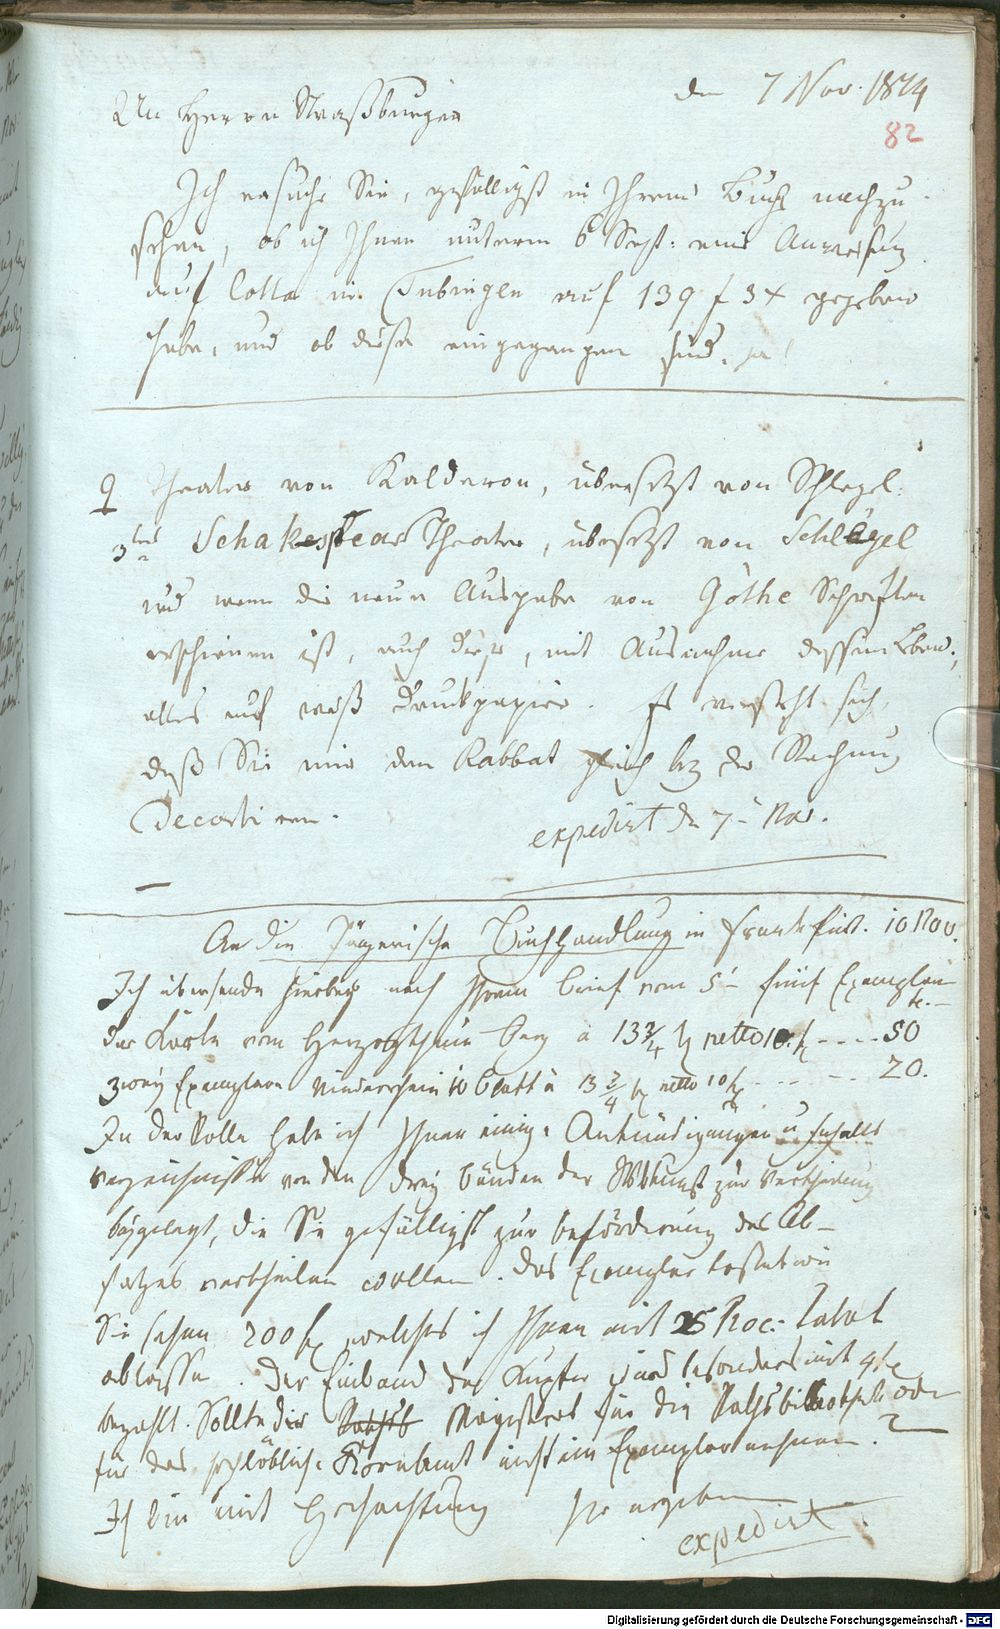 den 7 Nov. 1814
An Herrn Straßburger
82
Ich ersuche Sie, gefälligst in Ihrem Buch nachzu-
sehen, ob ich Ihnen unterm 6 Sept: eine Anweisung
auf Cotta in Tubingen auf 139 f 3 x gegeben
habe, und ob diese eingegangen sind. ja!
Theater von Kalderon, übersetzt von Schlegel.
3tens Schakespear Theater, übersetzt von Schlegel
und wenn die neue Ausgabe von Göthe Schriften
erschienen ist, auch diese, mit Ausnahme dessen Leben,
alles auf weiß Druckpapier. Es versteht sich,
daß Sie mir den Rabbat gleich bey der Rechnung
Decortiren.
expedirt den 7 Nov.
An die Jägerische Buchhandlung in Frankfurt. 10 Nov.
Ich übersende hierbey nach Ihrem Brief vom 5 fünf Exemplare
der Karte vom Herzogthum Berg a 13 3/4 netto 10 f ---- 50
zwey Exemplare Niederrhein 10 Blatt a 13 3/4 netto 10 f ---- 20.
In der Rolle habe ich Ihnen einige Ankündigungen u Inhalts
verzeichnisse von den drey Bänden der zur Vertheilung
beygelegt, die Sie gefälligst zur Beförderung des Ab-
satzes vertheilen wollen. Das Exemplar kostet wie
Sie sehen 200 f welches ich Ihnen mit 25 Proc: Rabat
ablasse. Der Einband der Kupfer wird besonders mit 4 f
bezahlt. Sollte der Magistrat für die Rathsbibliothek oder
für das hochlöbliche Kornamt nicht ein Exemplar nehmen?
Ich bin mit Hochachtung Ihr ergebener
expedirt
Digitalisierung gefördert durch die Deutsche Forschungsgemeinschaft - DFG